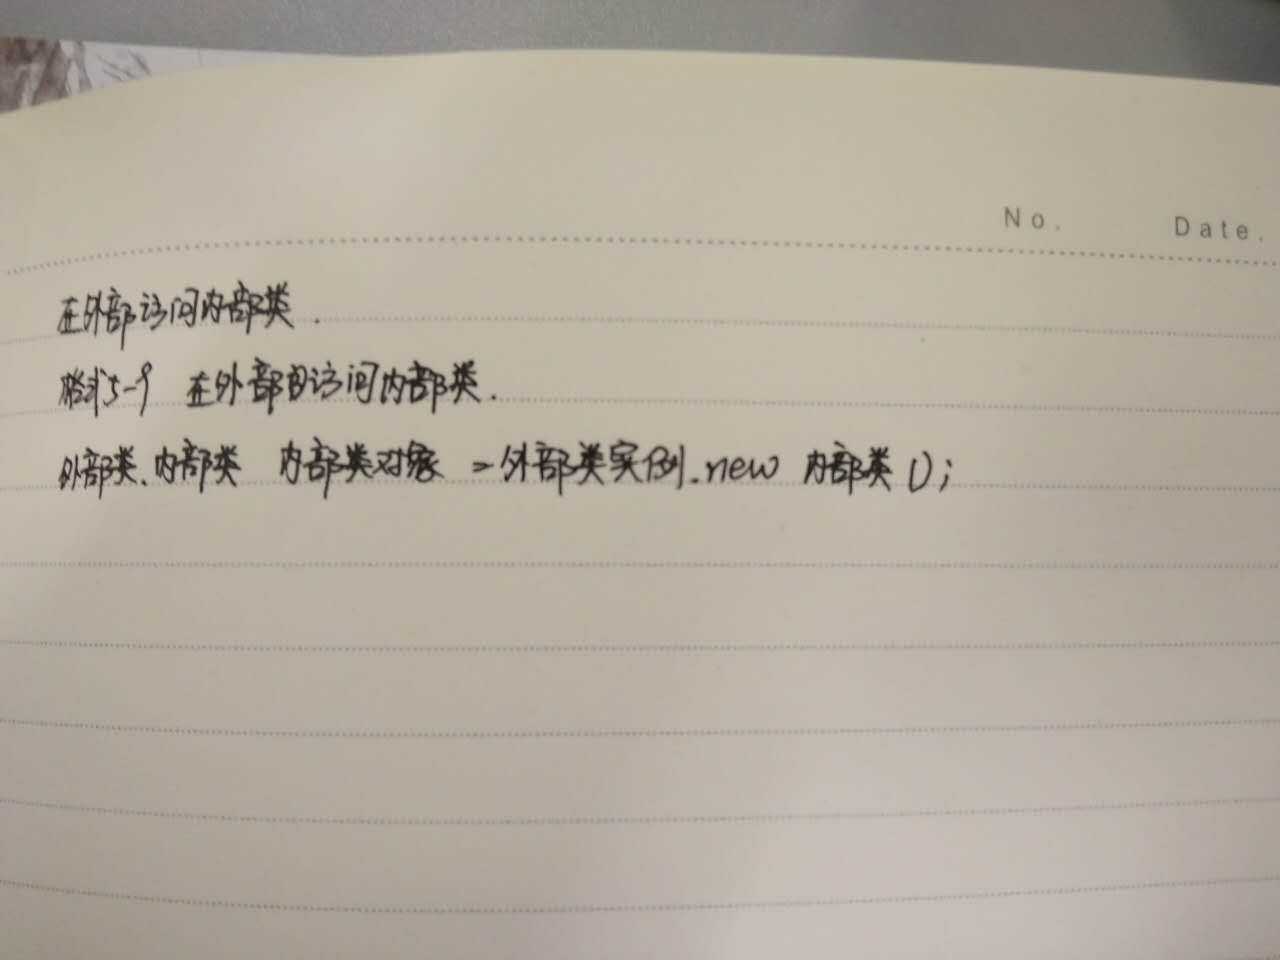 No. Date.
在外部访问内部类.
格式5-9 在外部的访问内部类.
外部类.内部类 内部类对象 = 外部类实例.new 内部类();